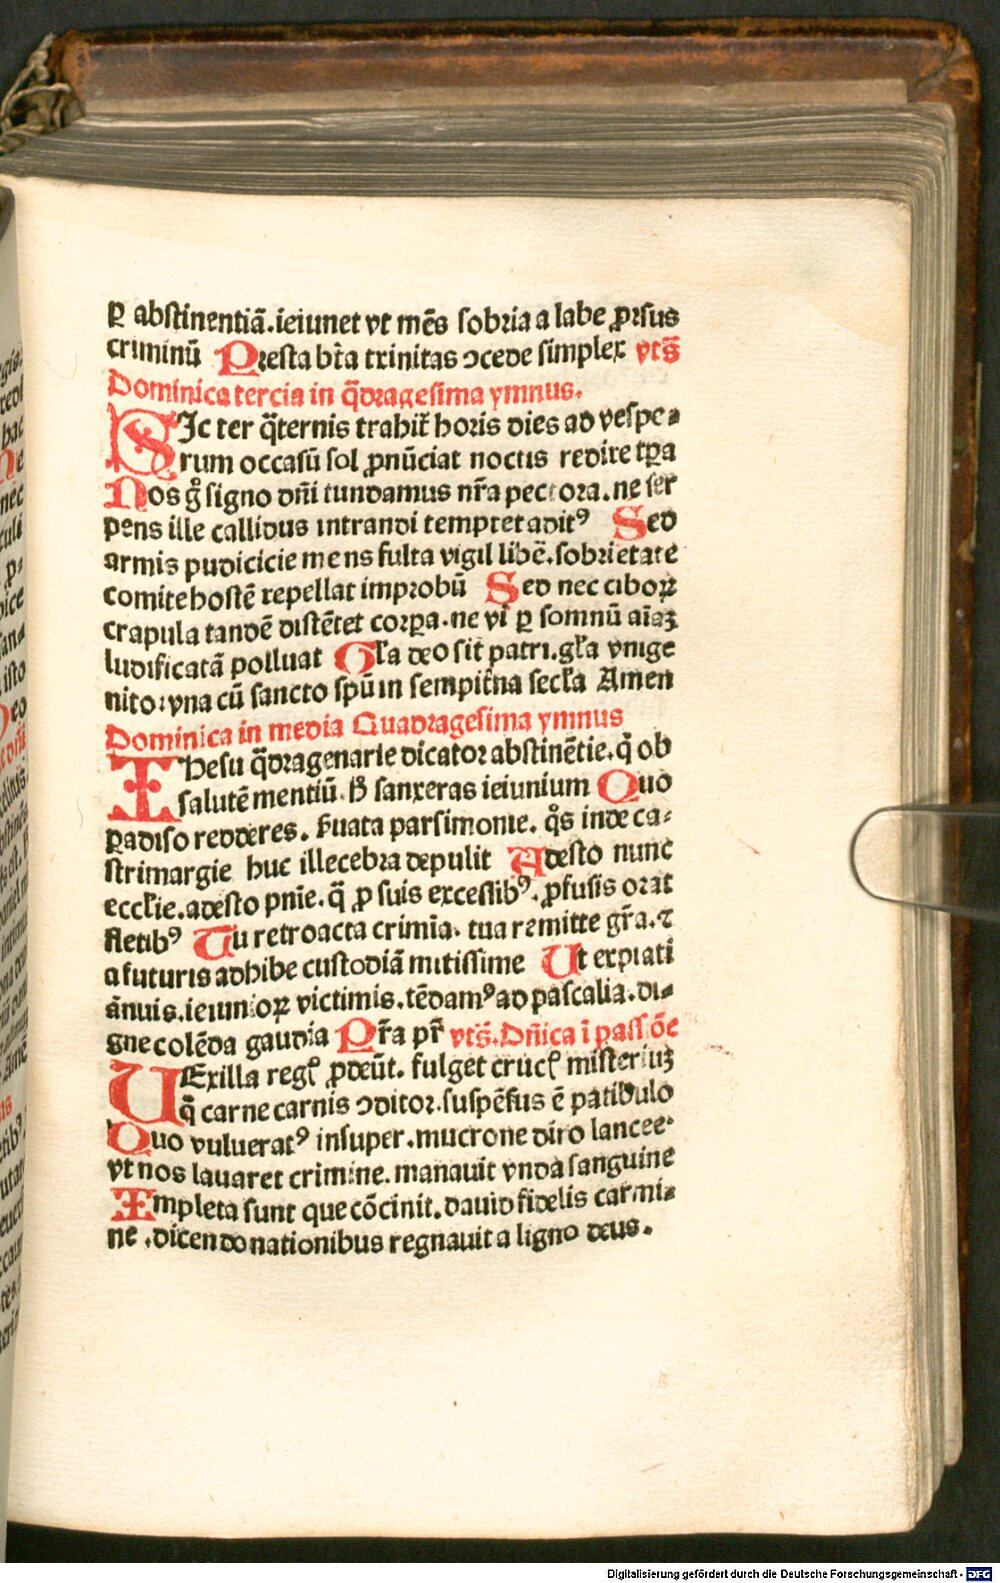 ꝑ abstinentiã.ieiunet vt mẽs sobria a labe ꝓrsus
criminũ Presta br̃a trinitas ↄcede simplex vts̃
Dominica tercia in q̃dragesima ymnus.
SIc ter q̃ternis trahit̃ horis dies ad vespe⸗
rum occasũ sol ꝓnũciat noctis redire tꝑa
Nos g̊ signo dñi tundamus nr̃a pectora.ne ser
pens ille callidus intrandi temptet aditꝰ Sed
armis pudicicie mens fulta vigil libẽ.sobrietate
comite hostẽ repellat improbũ Sed nec ciboꝝ
crapula tandẽ distẽtet corꝑa.ne vi ꝑ somnũ aĩaꝫ
ludificatã polluat Gl̃a deo sit patri.gl̃a vnige
nito:vna cũ sancto spũ in sempit̃na secl̃a Amen
Dominica in media Quadragesima ymnus
IHesu q̃dragenarie dicator abstinẽtie.q̃ ob
salutẽ mentiũ.h̃ sanxeras ieiunium Quo
ꝑadiso redderes. ẜuata parsimonie. q̊s inde ca⸗
strimargie huc illecebra depulit Adesto nunc
eccl̃ie.adesto pñie.q̃ ꝓ suis excessibꝰ.ꝓfusis orat
fletibꝰ Tu retroacta crimĩa. tua remitte gr̃a.⁊
a futuris adhibe custodiã mitissime Ut expiati
ãnuis.ieiunioꝝ victimis.tẽdamꝰ ad pascalia.di⸗
gne colẽda gaudia Pr̃a pr̃ vts̃.Dñica ĩ passiõe
UExilla regꝭ ꝓdeũt. fulget crucꝭ misteriuꝫ
q̃ carne carnis ↄditor.suspẽsus ẽ patibulo
Quo vulueratꝰ insuper.mucrone diro lancee.
vt nos lauaret crimine.manauit vnda sanguine
Impleta sunt que cõcinit.dauid fidelis carmi⸗
ne .dicendo nationibus regnauit a ligno deus.
Digitalisierung gefördert durch die Deutsche Forschungsgemeinschaft - DFG